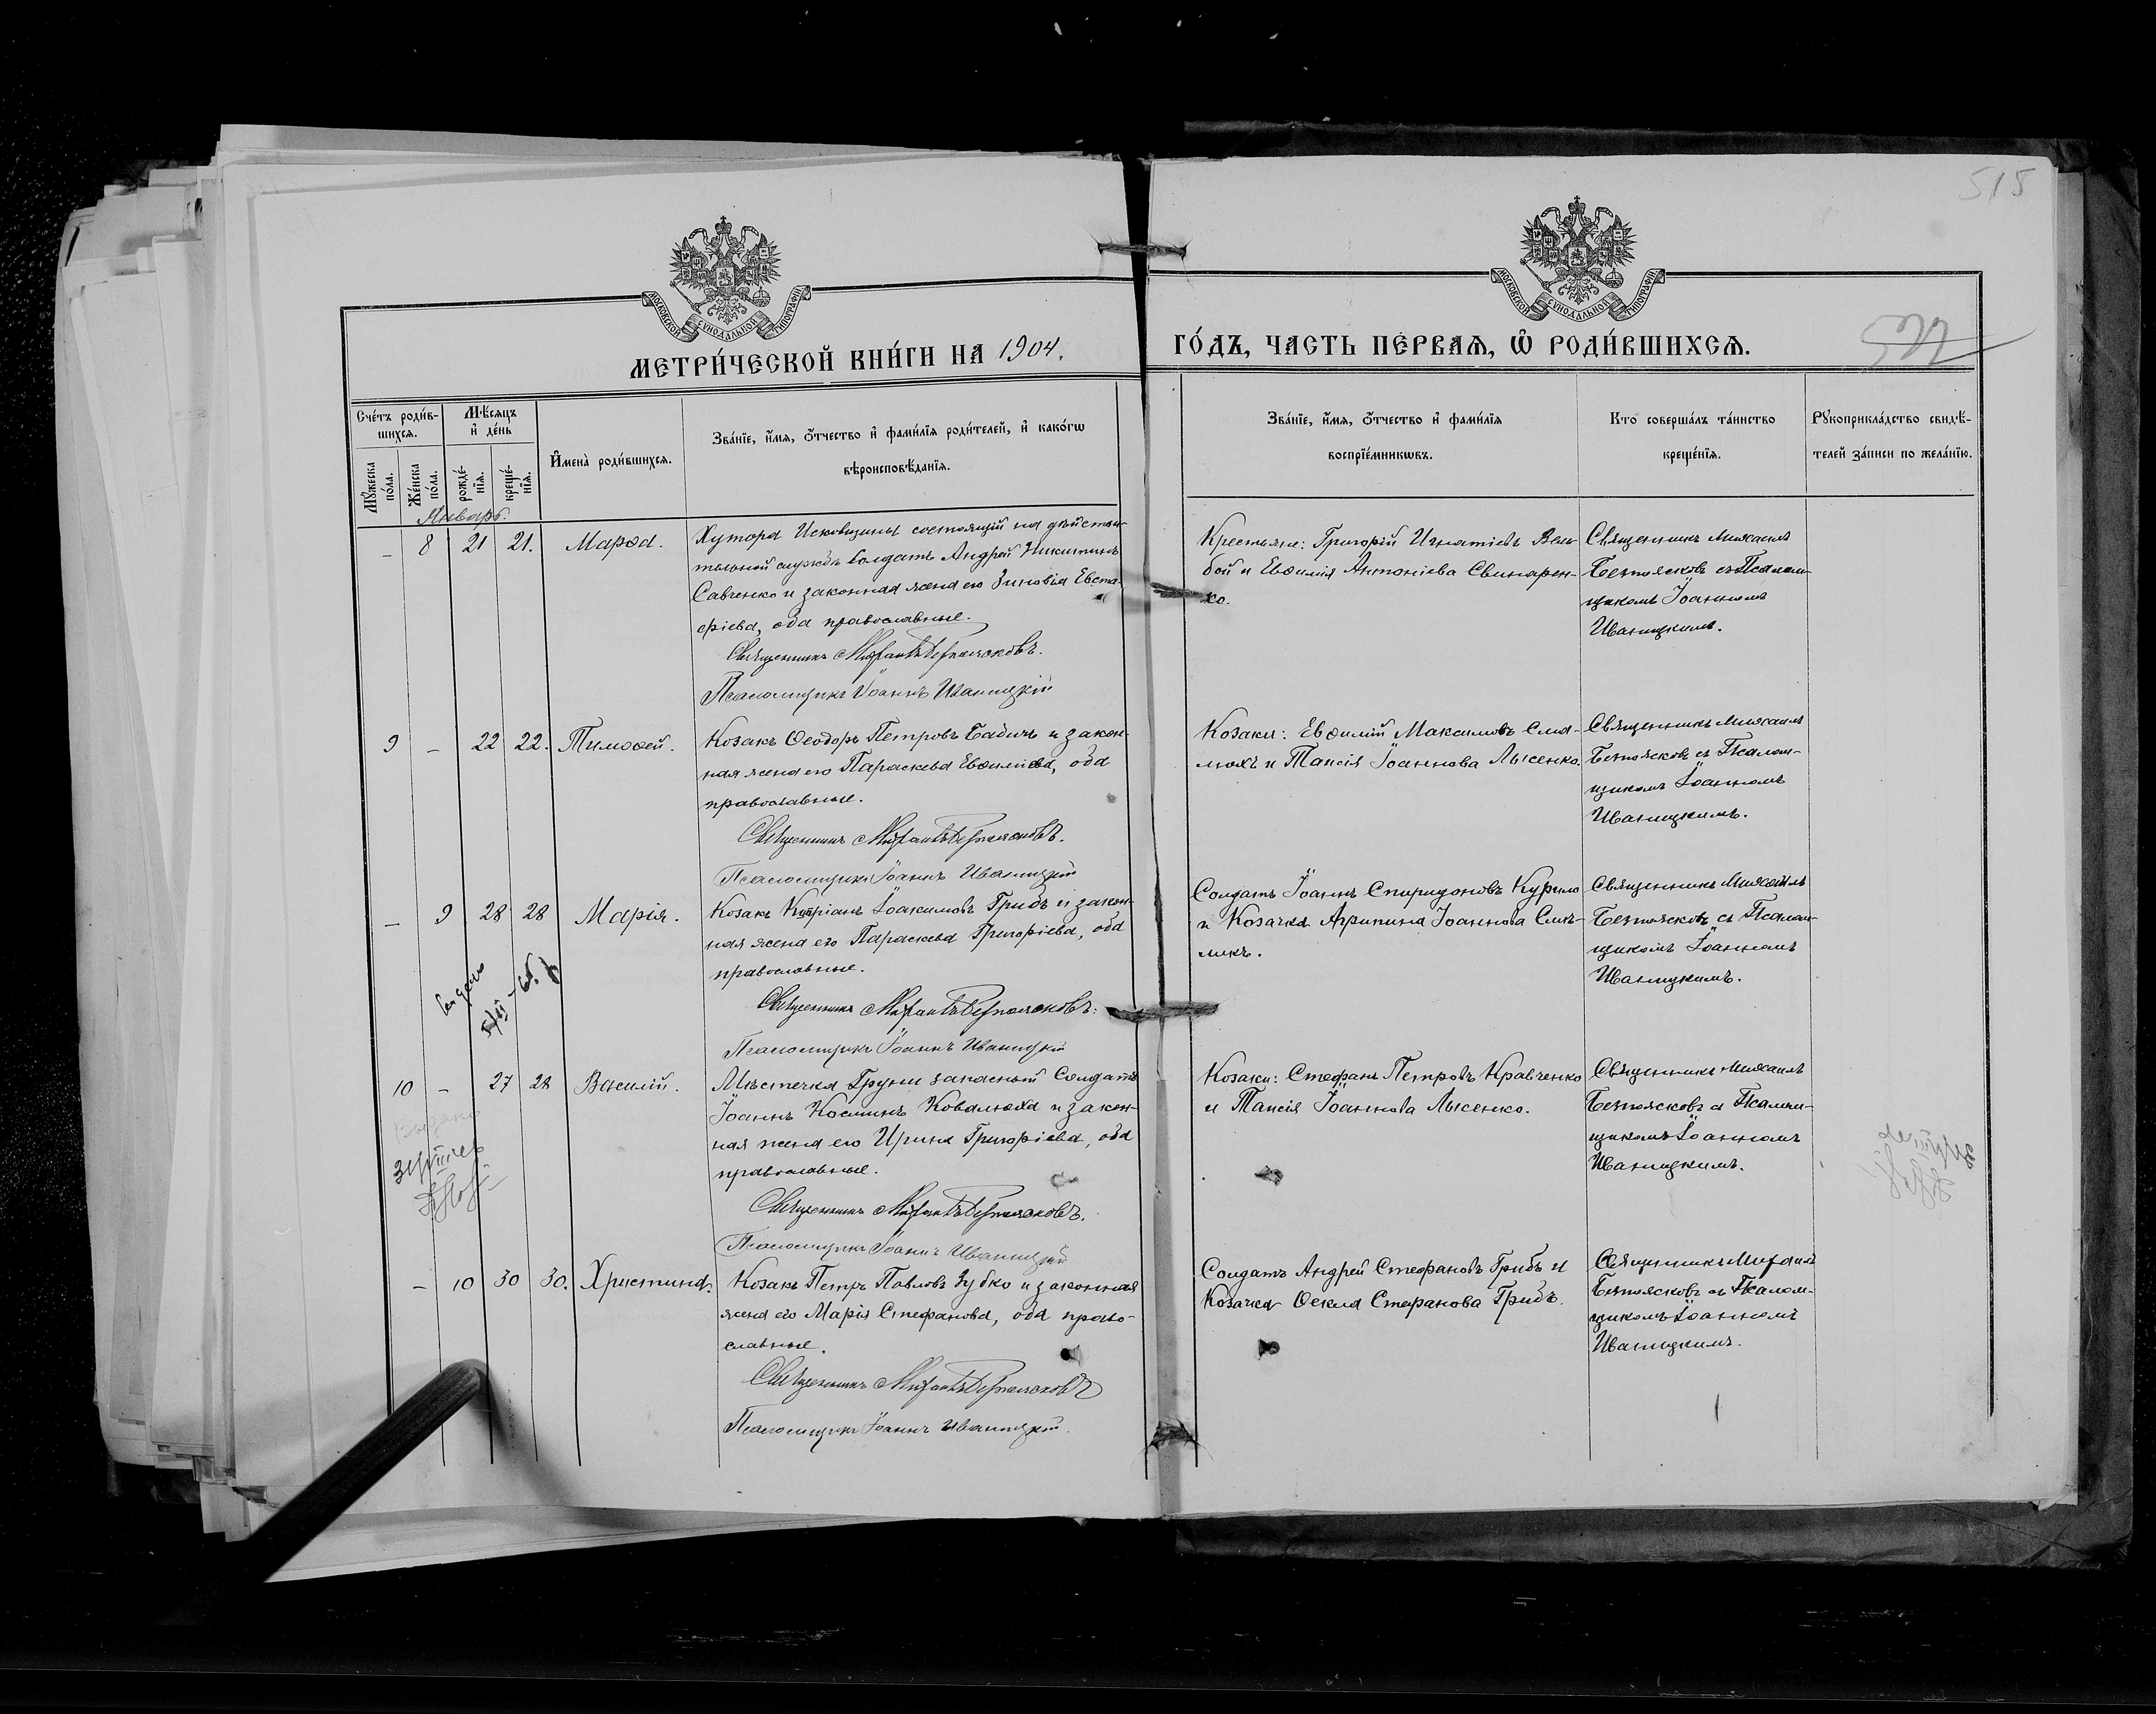 515
МОСКОВСКОЙ СѴНОДАЛЬНОЙ ТИПОГРАФІИ
МОСКОВСКОЙ СѴНОДАЛЬНОЙ ТИПОГРАФІИ
МЕТРИ́ЧЕСКОЙ КНИ́ГИ НА 1904.
ГО́ДЪ, ЧАСТЬ ПЕ́РВАЯ, Ѿ РОДИ́ВШИХСЯ.
Сче́тъ роди́в-
шихся.
Мꙋ́жеска
по́ла.
Же́нска
по́ла.
Мѣ́сяцъ
и҆ де́нь
рожде́-
нїя.
креще́-
нїя.
И҆мена̀ роди́вшихся.
Зва́нїе, и҆́мя, о҆́тчество и҆ фами́лїя роди́телей, и҆ како́гѡ
вѣроисповѣ́данїя.
Зва́нїе, и҆́мя, о҆́тчество и҆ фами́лїя
воспрїе́мникѡвъ.
Кто̀ соверша́лъ та́инство
креще́нїя.
Рꙋкоприкла́дство свидѣ́-
телей за́писи по жела́нїю.
Январь.
– 8 21 21. Марѳа.
Хутора Исковщины состоящій на дѣйстви-
тельной службѣ солдатъ Андрей Никитинъ
Савченко и законная жена его Зиновія Евста-
фіева, оба православные.
Священникъ Михаилъ Безпоясковъ.
Псаломщикъ Іоаннъ Иваницкій
Крестьяне: Григорій Игнатіевъ Вель-
бой и Евѳимія Антоніева Свинарен-
ко.
Священникъ Михаилъ
Безпоясковъ съ Псалом-
щикомъ Іоанномъ
Иваницкимъ.
9 – 22 22. Тимоѳей.
Козакъ Ѳеодоръ Петровъ Бабичъ и закон-
ная жена его Параскева Евѳиміева, оба
православные.
Священникъ Михаилъ Безпоясковъ.
Псаломщикъ Іоаннъ Иваницкій
Козаки: Евѳимій Максимовъ
и Таисія Іоаннова Лысенко.
Священникъ Михаилъ
Безпоясковъ съ Псалом-
щикомъ Іоанномъ
Иваницкимъ.
– 9 28 28 Марія.
Козакъ Кипріанъ Іоакимовъ Грибъ и закон-
ная жена его Параскева Григоріева, оба
православные.
Священникъ Михаилъ Безпоясковъ.
Псаломщикъ Іоаннъ Иваницкій
Солдатъ Іоаннъ Спиридоновъ Курило
и Козачка Агрипина Іоаннова
Священникъ Михаилъ
Безпоясковъ съ Псалом-
щикомъ Іоанномъ
Иваницкимъ.
10 – 27 28 Василій.
Мѣстечка Груни запасный Солдатъ
Іоаннъ Косминъ Ковалюха и закон-
ная жена его Ирина Григоріева, оба
православные.
Священникъ Михаилъ Безпоясковъ.
Псаломщикъ Іоаннъ Иваницкій
Козаки: Стефанъ Петровъ Кравченко
и Таисія Іоаннова Лысенко.
Священникъ Михаилъ
Безпоясковъ съ Псалом-
щикомъ Іоанномъ
Иваницкимъ.
– 10 30 30. Христина.
Козакъ Петръ Павловъ Зубко и законная
жена его Марія Стефанова, оба право-
славные.
Священникъ Михаилъ Безпоясковъ
Псаломщикъ Іоаннъ Иваницкій.
Солдатъ Андрей Стефановъ Грибъ и
Козачка Стефанова Грибъ.
Священникъ Михаилъ
Безпоясковъ съ Псалом-
щикомъ Іоанномъ
Иваницкимъ.